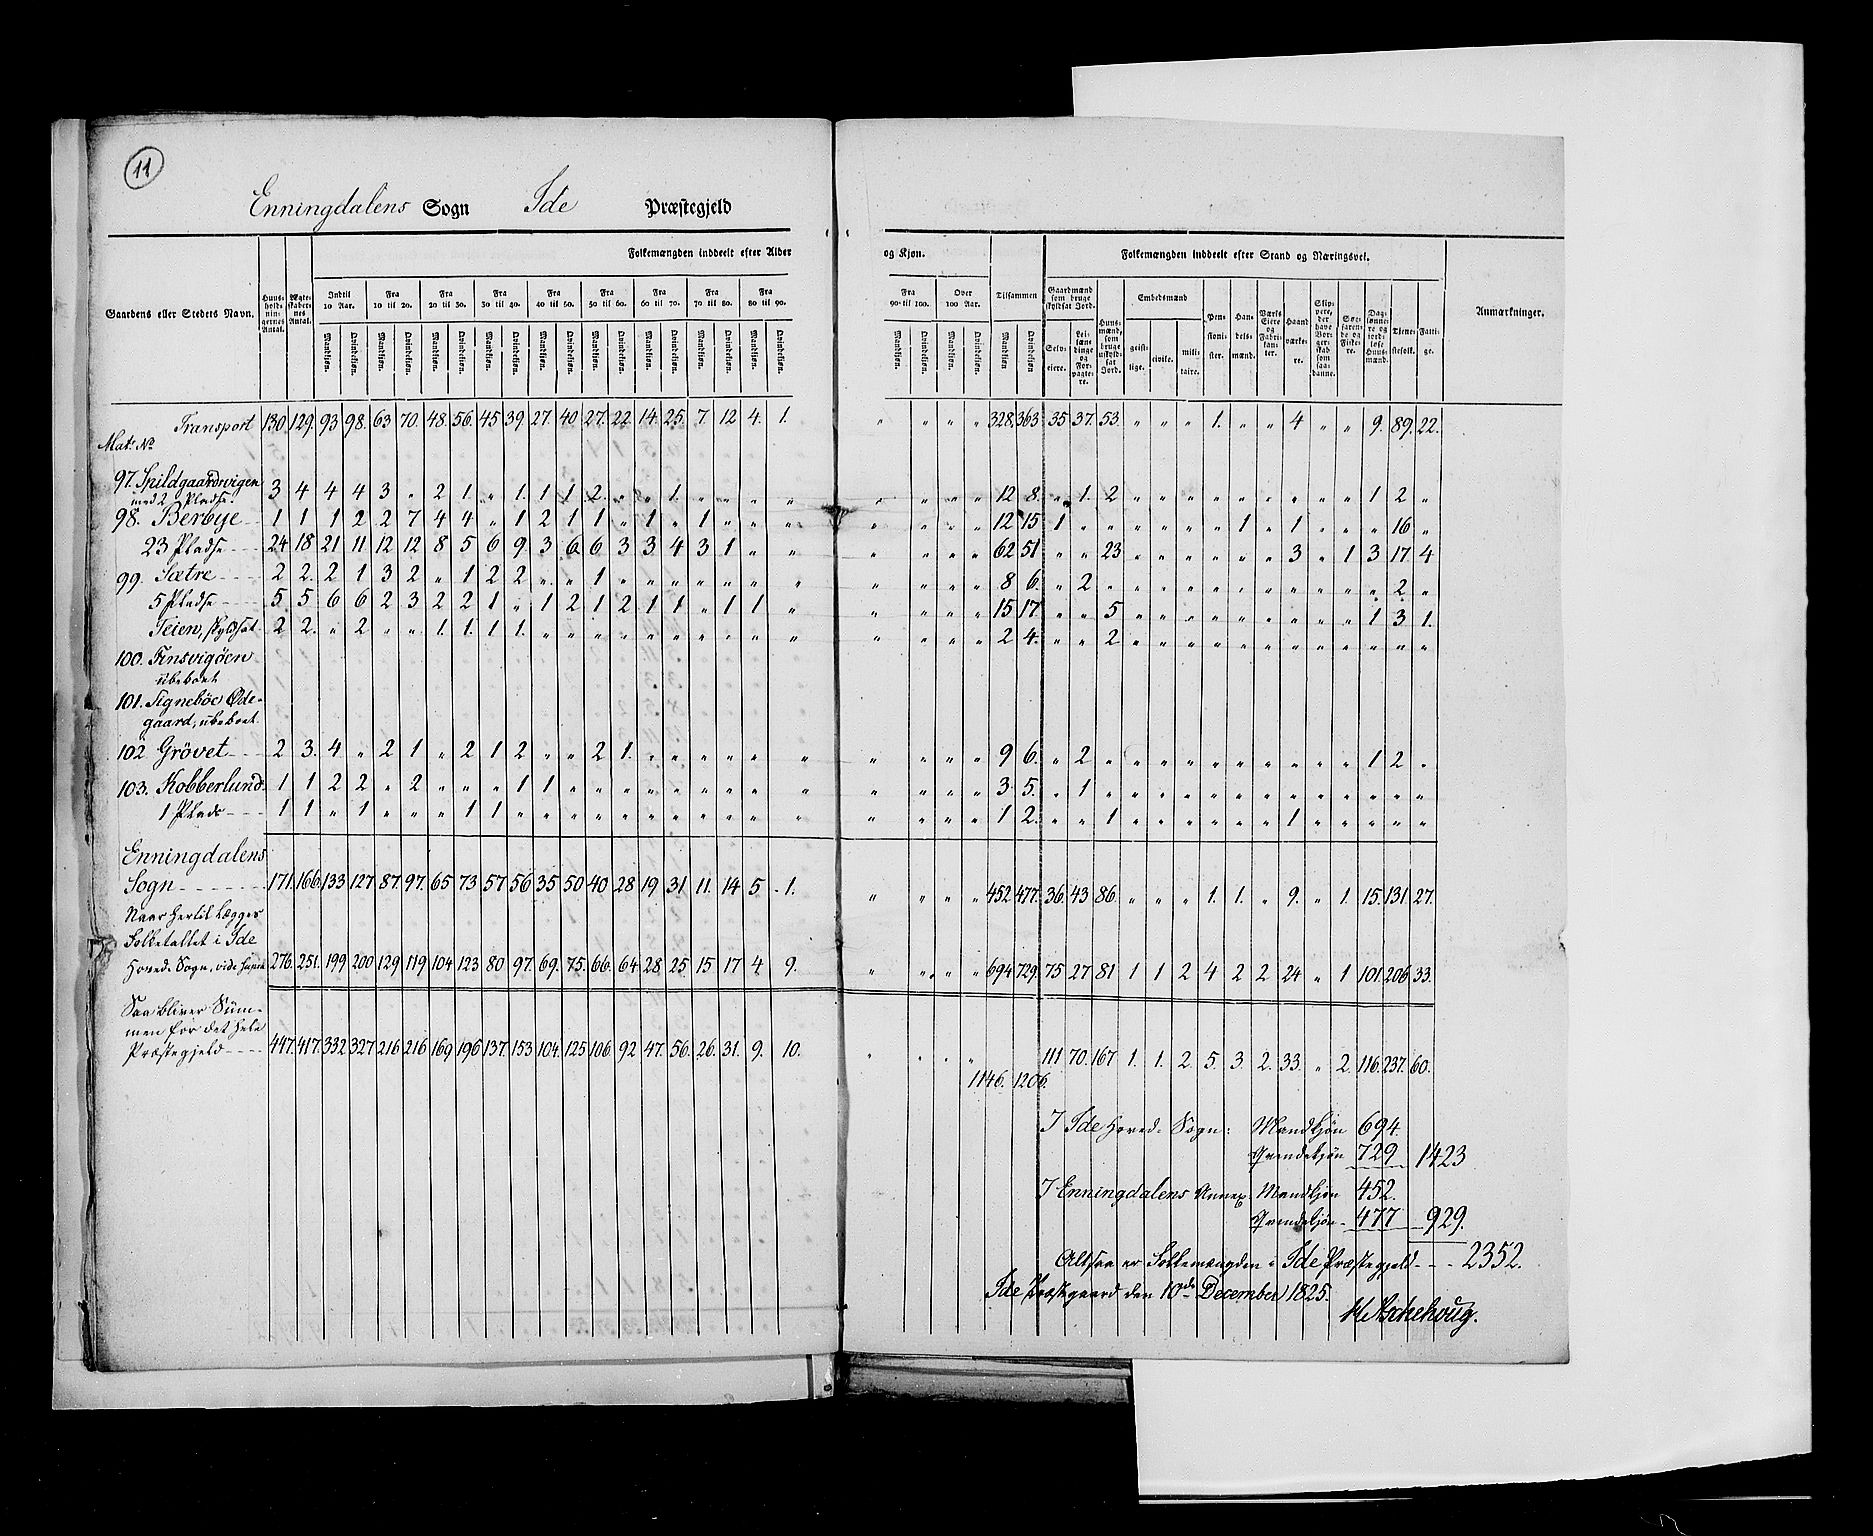 11
Enningdalens Sogn Ide Præstegjeld
Folkemængden inddeelt efter Alder og Kjøn. Folkemængden inddeelt efter Stand og Næringsvei.
Gaardens eller Stedets Navn. Huusholdningernes Antal. Ægteskabernes Antal. Indtil 10 Aar. Fra 10 til 20. Fra 20 til 30. Fra 30 til 40. Fra 40 til 50. Fra 50 til 60. Fra 60 til 70. Fra 70 til 80. Fra 80 til 90. Fra 90 til 100. Over 100 Aar. Tilsammen Gaardmænd som bruge skyldsat Jord. Embedsmænd Anmærkninger.
Mandkjøn. Qvindekjøn. Mandkjøn. Qvindekjøn. Mandkjøn. Qvindekjøn. Mandkjøn. Qvindekjøn. Mandkjøn. Qvindekjøn. Mandkjøn. Qvindekjøn. Mandkjøn. Qvindekjøn. Mandkjøn. Qvindekjøn. Mandkjøn. Qvindekjøn. Mandkjøn. Qvindekjøn. Mandkjøn. Qvindekjøn. Mandkjøn Qvindekjøn Selveiere. Leilændinge og Forpagtere. Huusmænd, som bruge uskyldsat Jord. geistlige. civile. militaire. Pensionister. Handelsmænd. Værks Eiere og Fabrikanter. Haandværkere. Slippere, der have Borgerskab som saadanne. Søefarende og Fiskere. Daglønnere og jordløse Huusmænd. Tjenestefolk. Fattige.
Transport 130 129. 93 98. 63 70. 48. 56. 45 39. 27. 40 27. 22 14. 25. 7. 12 4. 1. " " " " 328. 363 35 37. 53. " " " 1. " " 4 " " 9. 89. 22.
Mat: No
97. Spildgaardsvigen
med 2 Pladse. 3 4 4 4 3 " 2 1. " 1. 1 1 2. " " 1. " " " " " " " " 12 8. " 1. 2 " " " " " " " " " 1 2 "
98. Berbye 1 1 1 2 2 7 4 4 " 1 2 1 1 " 1 " 1 " " " " " " " 12 15 1 " " " " " " 1 " 1 " " " 16 "
23 Pladse 24 18 21 11 12 12 8 5 6 9 3 6 6 3 3 4 3 1 " " " " " " 62 51 " " 23 " " " " " " 3 " 1 3 17 4
99. Sætre 2 2. 2 1 3 2 " 1 2 2 " " 1 " " " " " " " " " " " 8 6. " 2 " " " " " " " " " " " 2 "
5 Pladse 5 5 6 6 2 3 2 2 1 " 1 2 1 2 1 1 " 1 1 " " " " " 15 17 " " 5 " " " " " " " " " 1 3 1.
Teien, skyldsat 2 2. " 2 " " 1. 1. 1 1. " " " " " " " " " " " " " " 2 4. " " 2 " " " " " " " " " " " "
100. Finsvigöen
ubeboet
101. Signeböe Øde-
gaard, ubeboet
102 Grövet 2 3. 4 " 2 1 " 2 1 2 " " 2 1. " " " " " " " " " " 9 6. " 2 " " " " " " " " " " 1 2 "
103. Kobberlund 1 1 2 2 " 2 " " " 1 1 " " " " " " " " " " " " " 3 5. " 1 " " " " " " " " " " " " "
1 Plads 1 1 " 1 " " " 1 1 " " " " " " " " " " " " " " " 1 2. " " 1 " " " " " " 1 " " " " "
Enningdalens
Sogn 171. 166. 133 127 87. 97. 65 73 57 56 35 50 40 28 19 31 11. 14 5 1. " " " " 452 477. 36. 43 86. " " " 1. 1. " 9. " 1. 15. 131 27.
Naar hertil lægges
Folketallet i Ide
Hoved-Sogn, vide 276. 251. 199 200 129 119 104 123 80 97. 69. 75. 66. 64 28 25 15 17 4. 9. " " " " 694 729. 75 27 81 1 1 2 4 2 2 24 " 1 101. 206 33.
Saa bliver Sum-
men for det hele
Præstegjeld 447. 417. 332 327 216 216 169 196 137. 153 104. 125 106. 92 47. 56. 26. 31. 9. 10. " " " " 111 70. 167 1. 1. 2. 5. 3. 2. 33. " 2. 116. 237. 60.
1146. 1206.
I Ide Hoved-Sogn: Mandkjön 694.
Qvindekjön 729 1423
I Enningdalens Annex. Mandkjön 452.
Qvindekjön 477 929.
Altsaa er Folkemængden i Ide Præstegjeld 2352.
Ide Præstegaard den 10de December 1825.
Aschehoug.